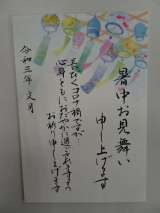 暑中お見舞い
申し上げます
長びくコロナ禍ですが
心身ともにおだやかに
お祈り申し上げます
令和三年 文月